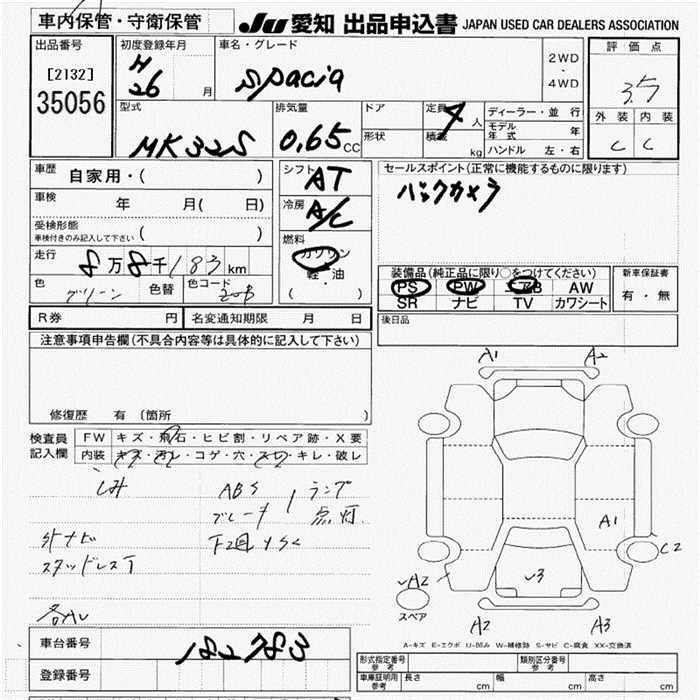 車内保管・守衛保管
JU 愛知 出品申込書 JAPAN USED CAR DEALERS ASSOCIATION
出品番号
[2132]
35056
初度登録年月
H
26 月
車名・グレード
spacia
2WD
・
4WD
評価点
3.5
外装 内装
C C
型式
MK32S
排気量
0.65 CC
ドア
形状
定員 4 人
積載 kg
ディーラー・並行
モデル年式 年
ハンドル 左・右
車歴
自家用・( )
車検 年 月( 日)
受検形態
車検付きのみ記入して下さい ( )
走行 8万8千183km
色 グリーン 色替 色コード
シフト AT
冷房 A/C
燃料
ガソリン
軽・油
( )
セールスポイント(正常に機能するものに限ります)
バックカメラ
装備品(純正品に限り○をつけてください)
PS PW エアB AW
SR ナビ TV カワシート
新車保証書
有・無
R券 円 名変通知期限 月 日
後日品
注意事項申告欄(不具合内容等は具体的に記入して下さい)
修復歴 有 (箇所 )
検査員記入欄
FW キズ・飛石・ヒビ割・リペア跡・X要
内装 キズ・汚レ・コゲ・穴・スレ・キレ・破レ
しみ
ABS
ブレーキ
ランプ
点灯
外ナビ
スタッドレスT
A1 A2
A1
C2
A2
スペア
√3
A2 A3
A-キズ E-エクボ U-凹み W-補修跡 S-サビ C-腐食 XX-交換済
車台番号 182783
登録番号
形式指定番号 参考
類別区分番号 参考
車庫証明用 参考 長さ cm 幅 cm 高さ cm